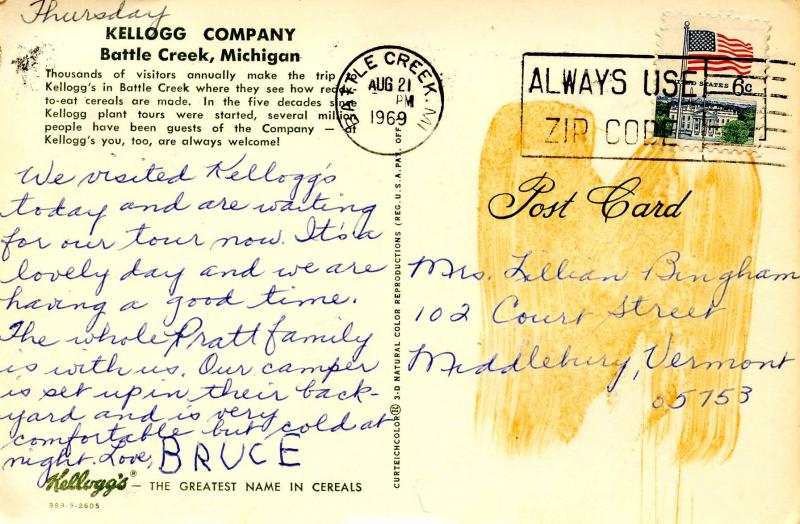 Thursday
KELLOGG COMPANY
Battle Creek, Michigan
Thousands of visitors annually make the trip
Kellogg's in Battle Creek where they see how
to-eat cereals are made. In the five decades
Kellogg plant tours were started, several
people have been guests of the Company —
Kellogg's you, too, are always welcome!
We visited Kellogg's
today and are waiting
for our tour now. It's a
lovely day and we are
having a good time.
The whole Pratt family
is with us. Our camper
is set up in their back-
yard and is very
comfortable but cold at
night. Love, BRUCE
Kellogg's® — THE GREATEST NAME IN CEREALS
999-9-2605
CURTEICHCOLOR® 3-D NATURAL COLOR REPRODUCTIONS (REG. U.S.A. PAT. OFF.
BATTLE CREEK, MI
AUG 21
PM
1969
ALWAYS USE
ZIP CODE
STATES 6c
Post Card
Mrs. Lillian Bingham
102 Court Street
Middlebury, Vermont
05753